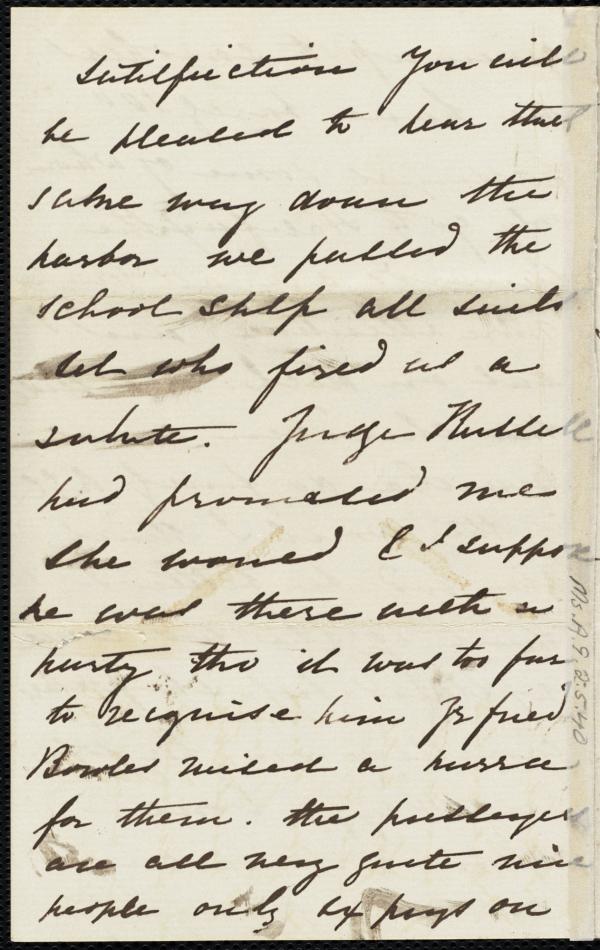 satisfaction You will
be pleased to hear that
some way down the
harbor we passed the
school ship all sails
set who fired us a
salute. Judge Russell
had promised me
she would & I suppose
he was there with a
party tho' it was too far
to recognise him Yr friend
Bowles raised a hurra
for them. the passengers
are all very quiet nice
people only six pugs on
Ms. A.9.2.5.40